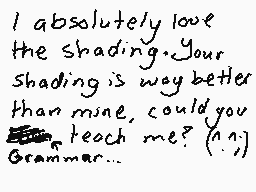 I absolutely love
the shading. Your
shading is way better
than mine, could you
teach me? (^.^;)
Grammar...